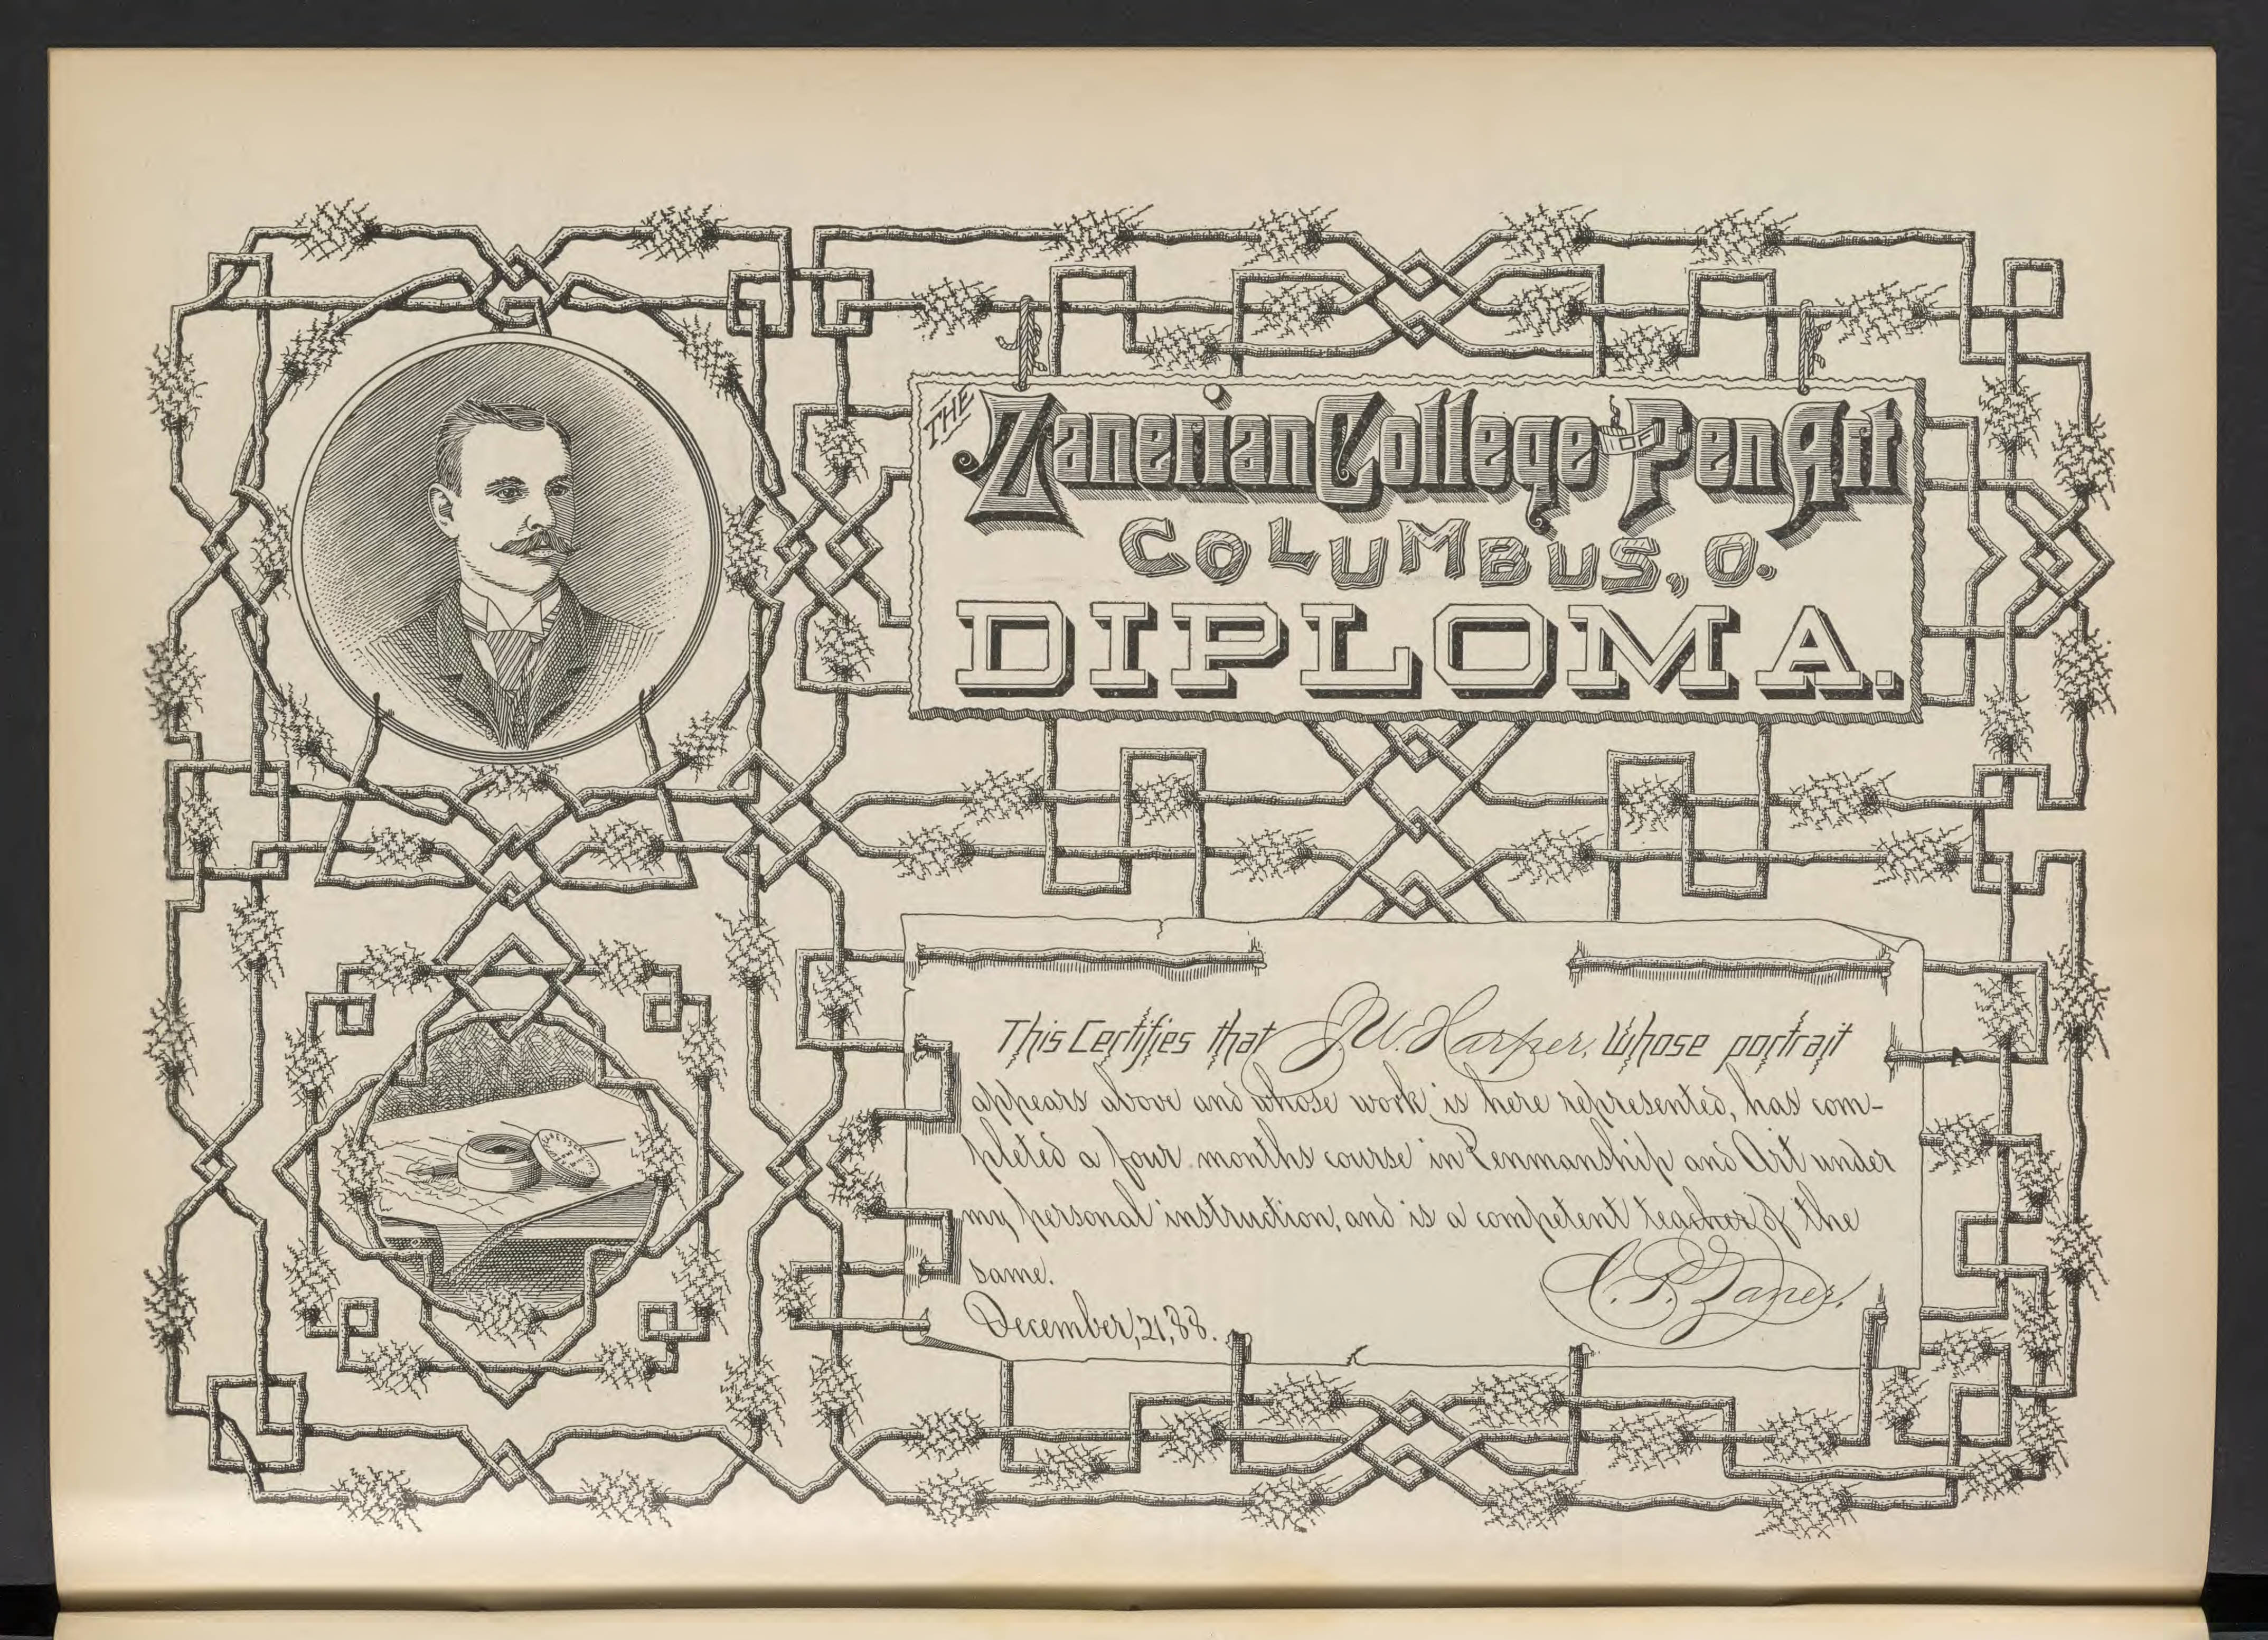 THE Zanerian College OF Pen Art
COLUMBUS, O.
DIPLOMA.
This Certifies that J.W. Harper, Whose portrait
appears above and whose work, is here represented, has com-
pleted a four months course in Penmanship and Art under
my personal instruction, and is a competent teacher of the
same.
C. P. Zaner.
December, 21, 88.